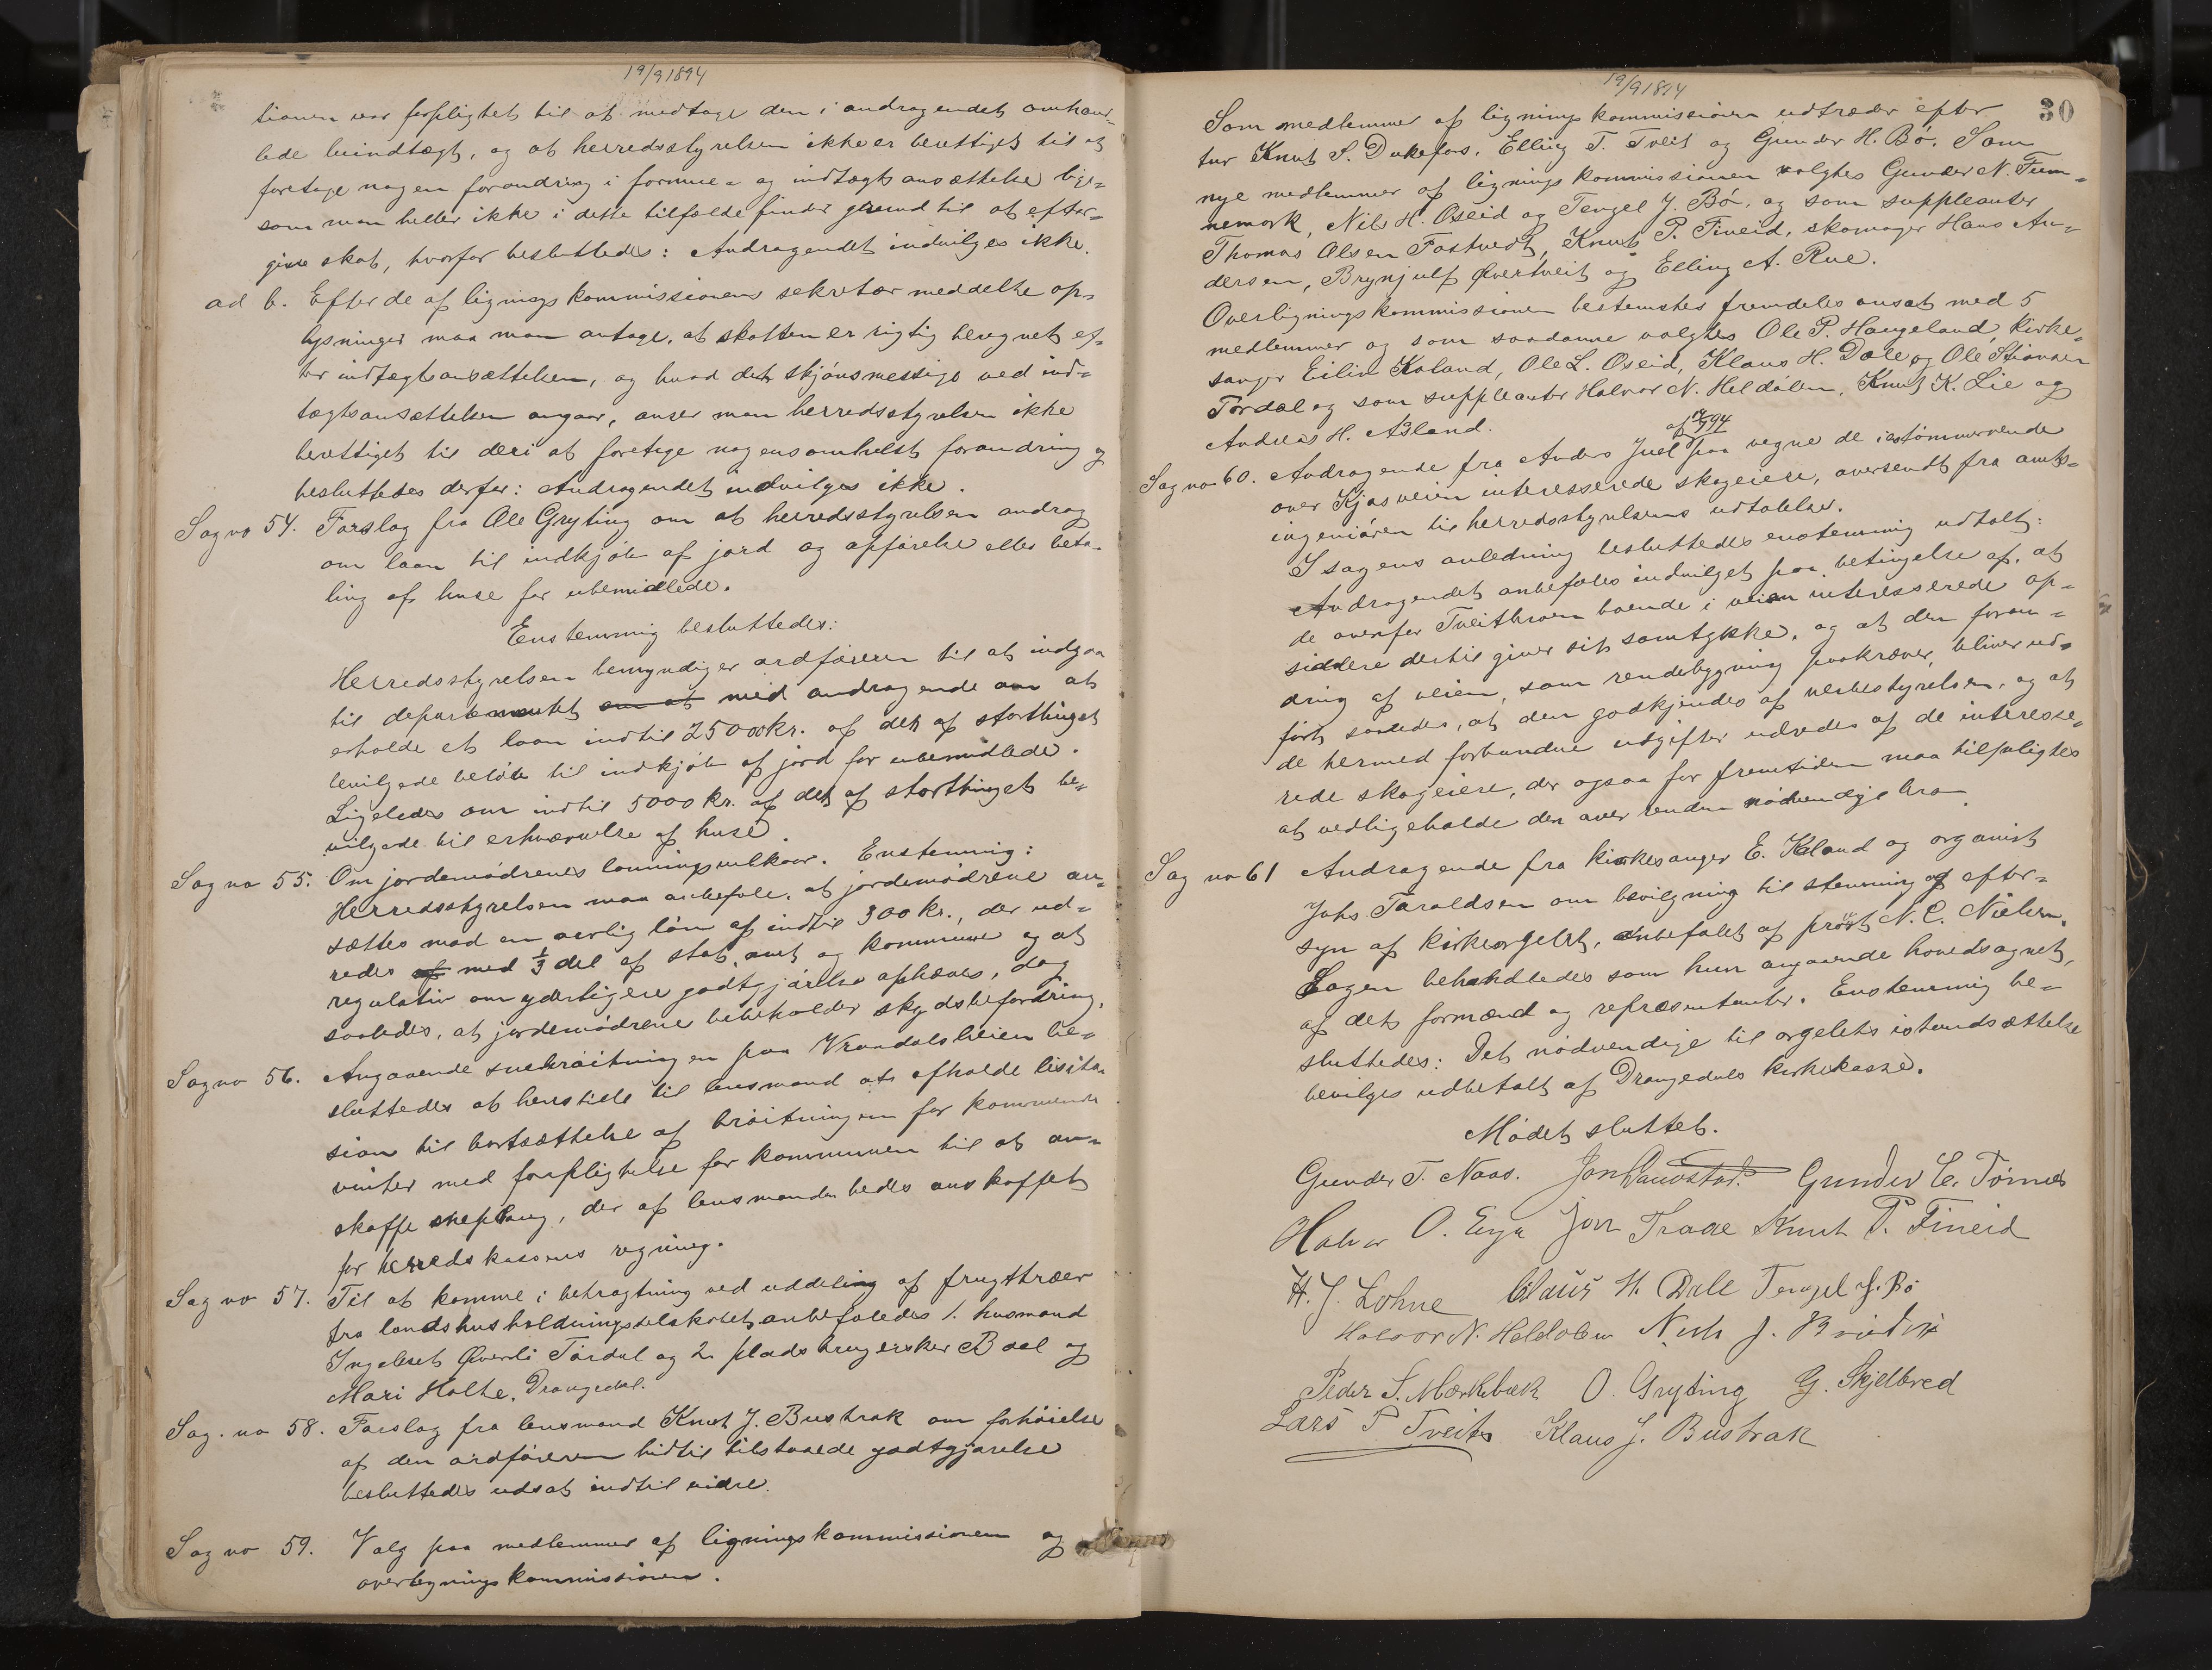 19/9 1894
sionen var forpligtet til at medtage den i andragendet omhand-
lede leiindtægt, og at herredsstyrelsen ikke er berettiget til at
foretage nogen forandring i formue- og indtægtsansættelse lige-
som man heller ikke i dette tilfælde finder grund til at efter-
give skat, hvorfor besluttedes: Andragendet indvilges ikke.
ad b. Efter de af ligningskommissionens sekretær meddelte op-
lysninger maa man antage, at skatten er rigtig beregnet ef-
ter indtægtsansættelsen, og hvad det skjønsmessige ved ind-
tægtsansættelsen angaar, anser man herredsstyrelsen ikke
berettiget til deri at foretage nogensomhelst forandring og
besluttedes derfor: Andragendet indvilges ikke.
Sag no 54. Forslag fra Ole Gryting om at herredsstyrelsen andrag
om laan til indkjøb af jord og opførelse eller beta-
ling af huse for ubemidlede.
Enstemmig besluttedes:
Herredsstyrelsen bemyndiger ordføreren til at indgaa
til departementet om at med andragende om at
erholde et laan indtil 25000 kr. af det af storthinget
bevilgede beløb til indkjøb af jord for ubemidlede.
Ligeledes om indtil 5000 kr. af det af storthinget be-
vilgede til erhvervelse af huse.
Sag no 55. Om jordemødrenes lønningsvilkaar. Enstemmig:
Herredsstyrelsen maa anbefale, at jordemødrene an-
sættes mod en aarlig løn af indtil 300 kr., der ud-
redes af med 1/3 del af stat, amt og kommune og at
regulativ om yderligere godtgjørelse ophæves, dog
saaledes, at jordemødrene bibeholder skydsbefordring.
Sag no 56. Angaaende snebrøitningen paa Vraadalsheien be-
sluttedes at henstille til lensmand at afholde lisita-
sion til bortsættelse af brøitningen for kommende
vinter med forpligtelse for kommunen til at an-
skaffe sneplaug, der af lensmanden bedes anskaffet
for herredskassens regning.
Sag no 57. Til at komme i betragtning ved uddeling af frugttræer
fra landhusholdningsselskabet anbefaledes 1. husmand
Ingebret Øverli Tørdal og 2 pladsbrugersker Boel og
Mari Holte, Drangedal.
Sag. no 58. Forslag fra lensmand Knut J. Bustrak om forhøielse
af den ordføreren hidtil tilstaaede godtgjørelse
besluttedes udsat indtil videre.
Sag no 59. Valg paa medlemmer af ligningskommissionen og
overligningskommissionen.
19/9 1894
30
Som medlemmer af ligningskommissionen udtræder efter
tur Knut S. Dukefos, Elling T. Tveit og Gunder H. Bø. Som
nye medlemmer af ligningskommissionen valgtes Gunder N. Tum-
nemork, Nils H. Oseid og Tengel J. Bø, og som suppleanter
Thomas Olsen Fostvedt, Knut P. Fineid, skomager Hans An-
dersen, Brynjulf Øvertveit og Elling A. Rue.
Overligningskommissionen bestemtes fremdeles ansat med 5
medlemmer og som saadanne valgtes Ole P. Haugeland, kirke-
sanger Eilin Kaland, Ole L. Oseid, Klaus H. Dale og Ole Stiansen
Tørdal og som suppleanter Halvor N. Heldølen, Knut K. Lie og
Andreas H. Åsland.
Sag no 60. Andragende fra Anders Juel af 17/9 94 paa vegne de i tømmerrende
over Kjøsveien interesserede skogeiere, oversendt fra amts-
ingeniøren til herredsstyrelsens udtalelse.
I sagens anledning besluttedes enstemmig udtalt:
Andragendet anbefales indvilget paa betingelse af, at
de ovenfor Tveitbroen boende i veien interesserede op-
siddere dertil giver sit samtykke, og at den foran-
dring af veien, som rendebygning paakræver, bliver ud-
ført saaledes, at den godkjendes af veibestyrelsen, og at
de hermed forbundne udgifter udredes af de interesse-
rede skogeiere, der ogsaa for fremtiden maa tilpligtes
at vedligeholde den over renden nødvendige bro.
Sag no 61 Andragende fra kirkesanger E. Kaland og organist
Johs. Taraldsen om bevilgning til stemning og efter-
syn af kirkeorgelet, anbefalet af prøvst N. C. Nielsen.
Sagen behandledes som kun angaaende hovedsognet,
af dets formænd og repræsentanter. Enstemmig be-
sluttedes: Det nødvendige til orgelets istandsættelse
bevilges udbetalt af Drangedals kirkekasse.
Mødet sluttet.
Gunder T. Naas. Jon Gunder C. Tørnes
Halvor O. Eije Jon Traae Knut P. Fineid
H. J. Lohne Claus H. Dale Tengel J. Bø
Halvor N. Heldølen J.
Peder S. Mærkebæk O. Gryting G. Skjelbred
Lars P Tveit Klaus J. Bustrak